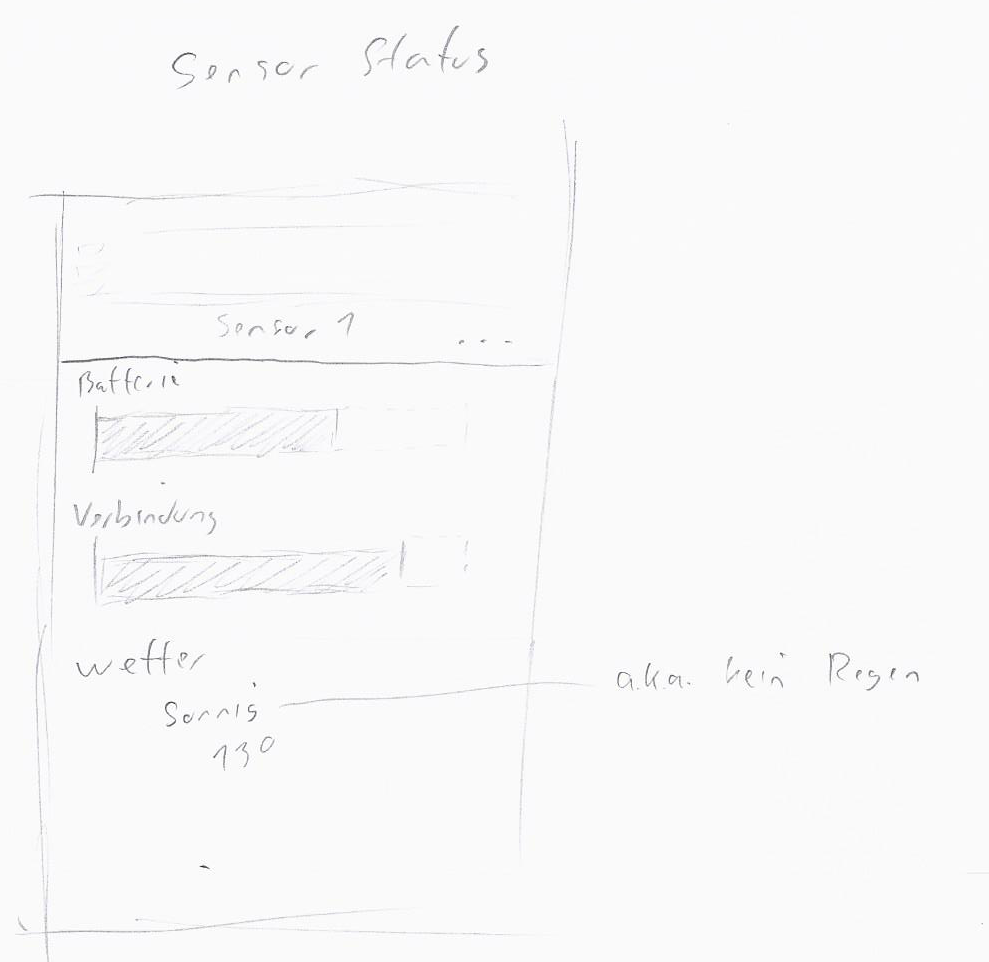 Sensor Status
Sensor 1 ...
Batterie
Verbindung
Wetter
Sonnig
a.k.a. kein Regen
13°